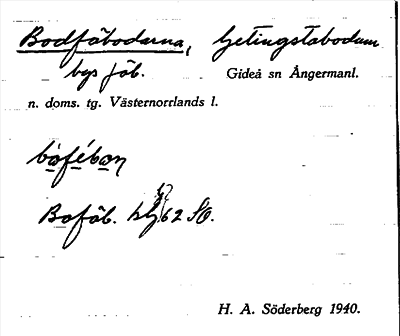 Bodfäbodarna, Getingstabodum
bys fäb. Gideå sn Ångermanl.
n. doms. tg. Västernorrlands l.
bofébon
Bofäb. 62 SO.
H. A. Söderberg 1940.